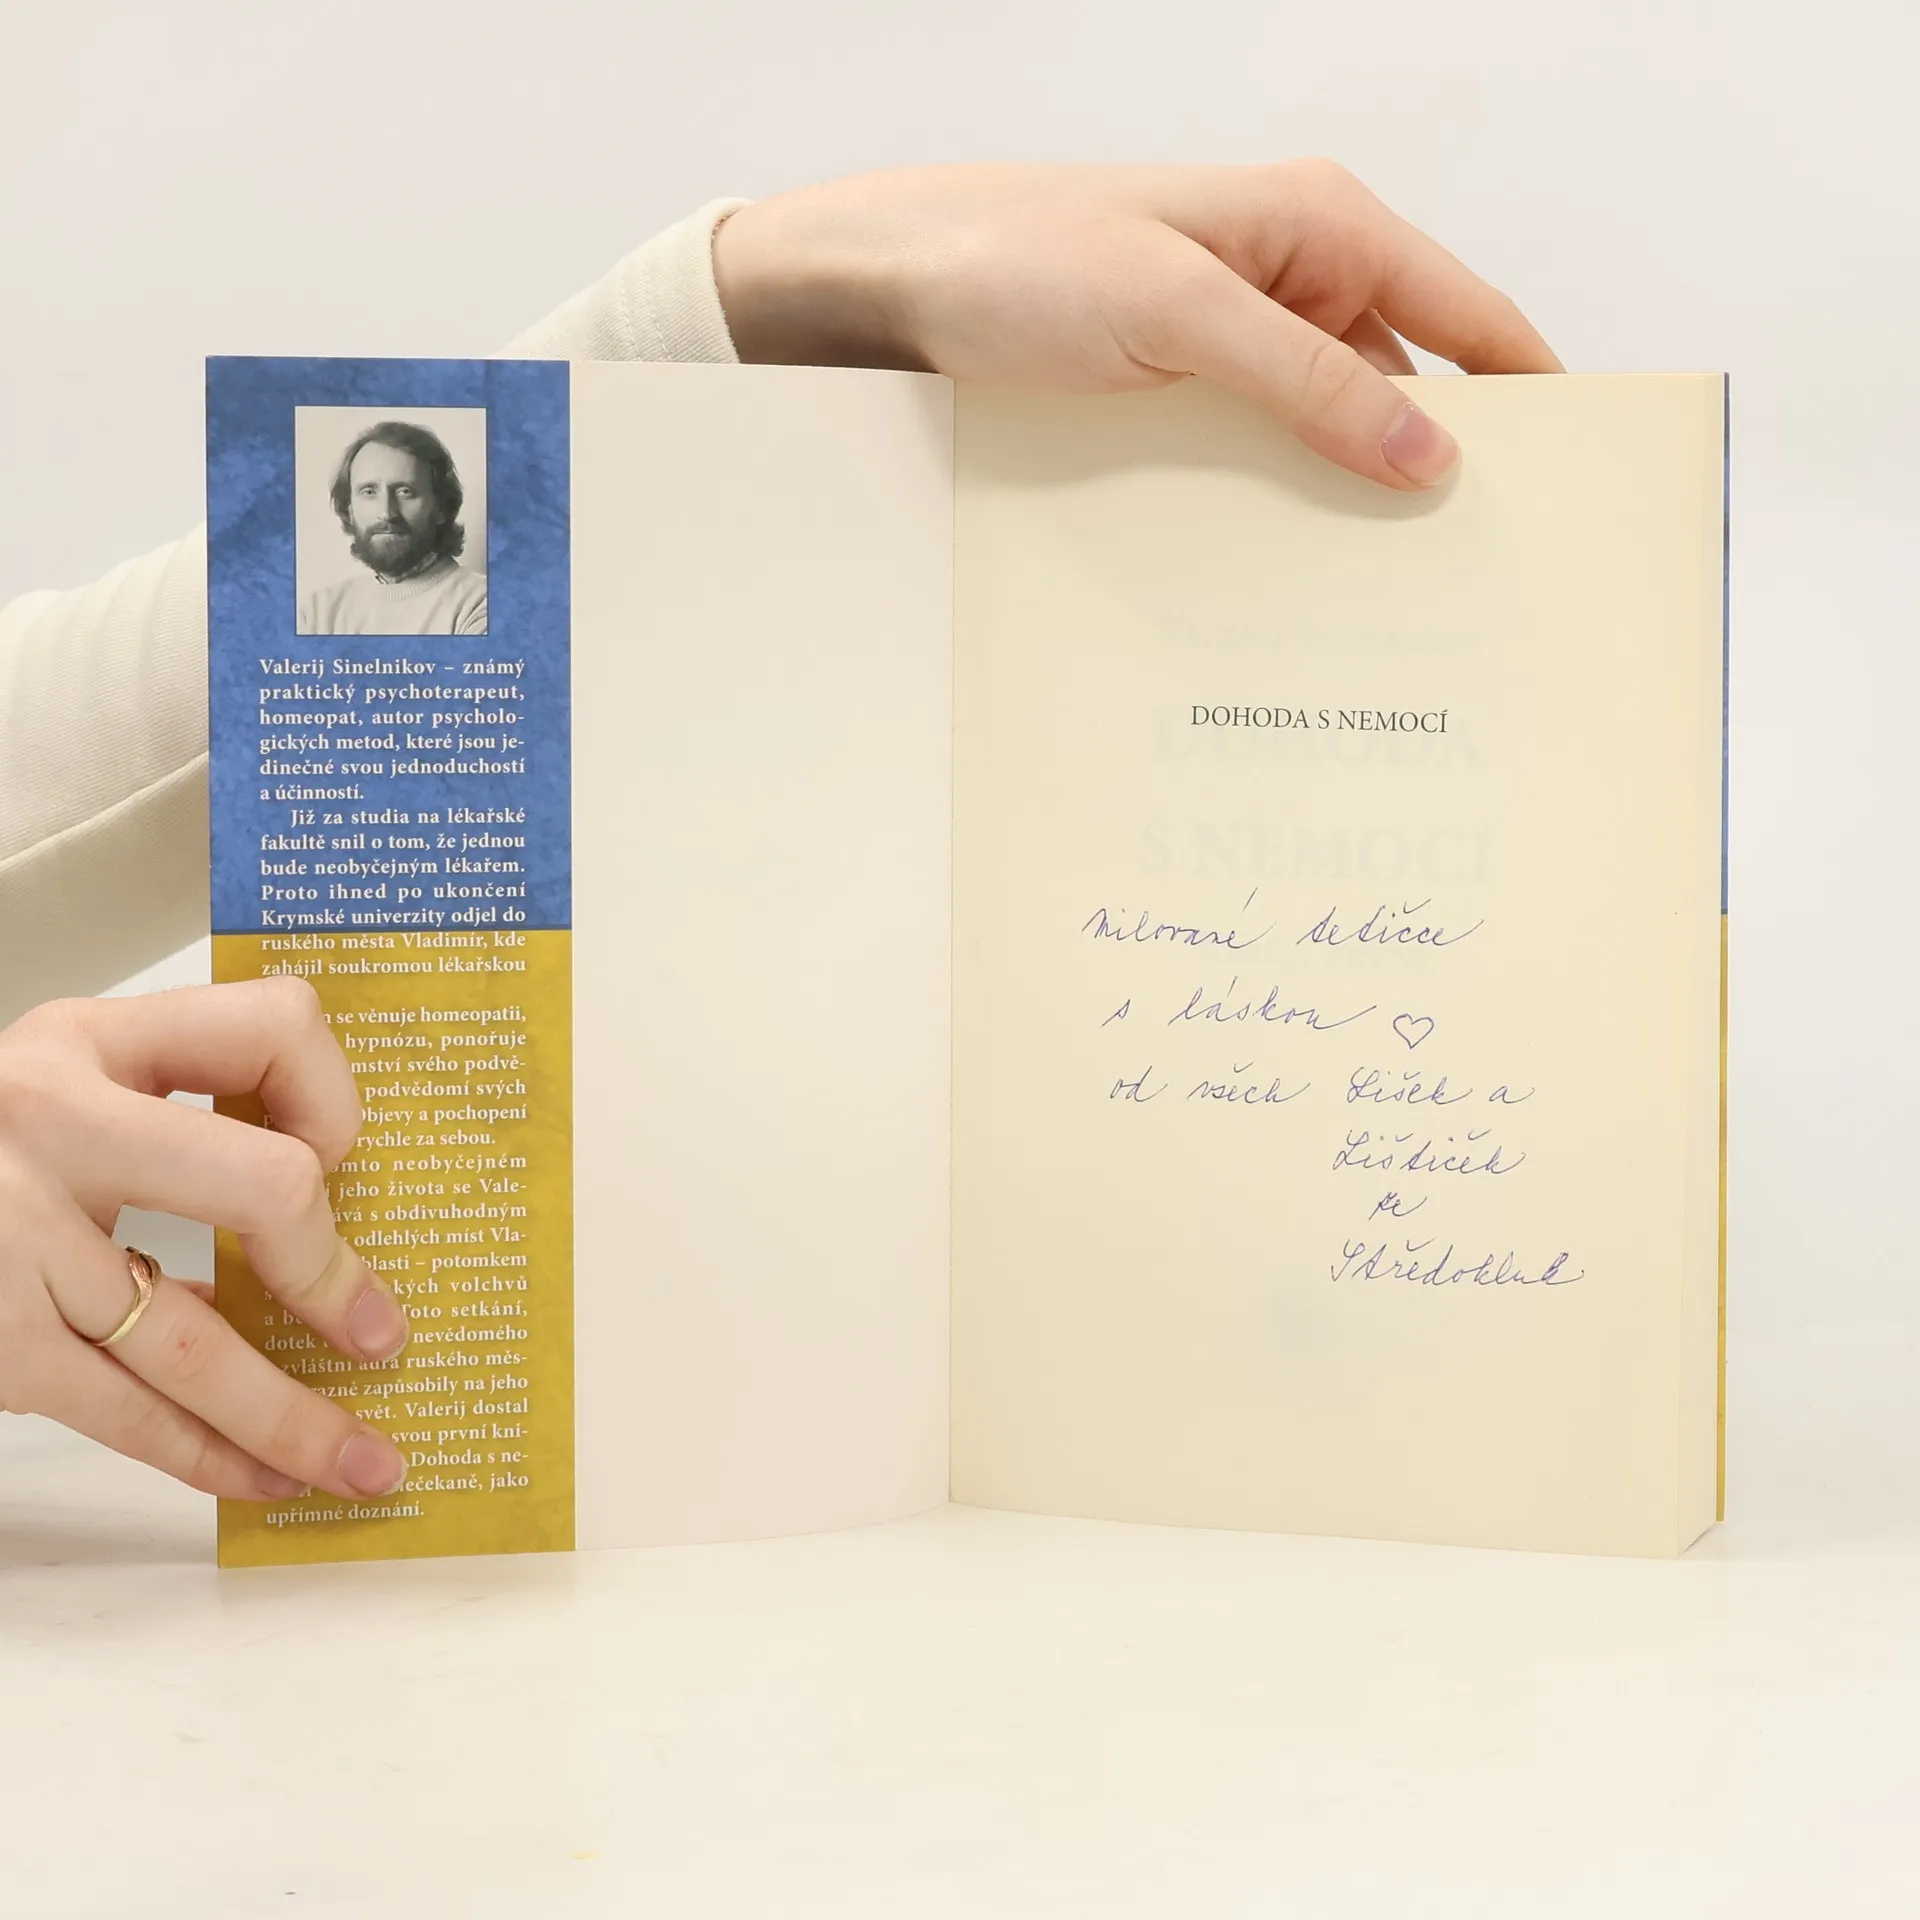 Valerij Sinelnikov – známý
praktický psychoterapeut,
homeopat, autor psycholo-
gických metod, které jsou je-
dinečné svou jednoduchostí
a účinností.
Již za studia na lékařské
fakultě snil o tom, že jednou
bude neobyčejným lékařem.
Proto ihned po ukončení
Krymské univerzity odjel do
ruského města Vladimir, kde
zahájil soukromou lékařskou
se věnuje homeopatii,
hypnózu, ponořuje
mství svého podvě-
podvědomí svých
Objevy a pochopení
rychle za sebou.
omto neobyčejném
jeho života se Vale-
ává s obdivuhodným
odlehlých míst Vla-
blasti – potomkem
kých volchvů
Toto setkání,
dotek nevědomého
zvláštní aura ruského měs-
razně zapůsobily na jeho
svět. Valerij dostal
svou první kni-
Dohoda s ne-
ečekaně, jako
upřímné doznání.
DOHODA S NEMOCÍ
Milované tetičce
s láskou ♡
od všech Lišek a
Lištiček
ze
Středokluk